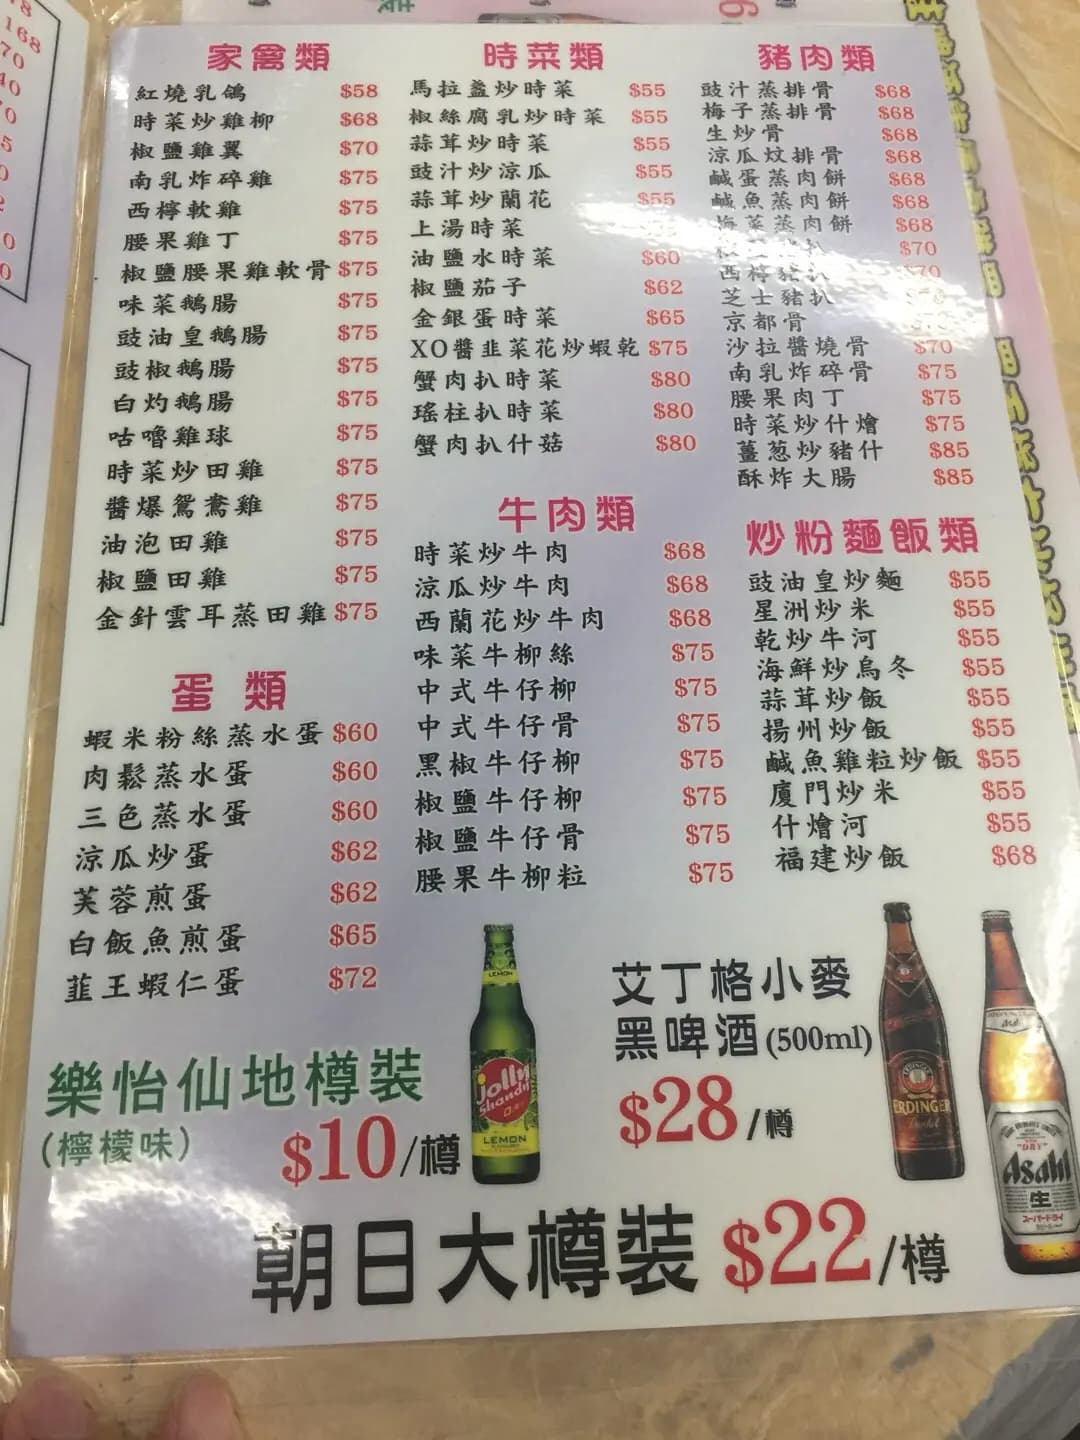 家禽類
紅燒乳鴿 $58
時菜炒雞柳 $68
椒鹽雞翼 $70
南乳炸碎雞 $75
西檸軟雞 $75
腰果雞丁 $75
椒鹽腰果雞軟骨 $75
味菜鵝腸 $75
豉油皇鵝腸 $75
豉椒鵝腸 $75
白灼鵝腸 $75
咕嚕雞球 $75
時菜炒田雞 $75
醬爆鴛鴦雞 $75
油泡田雞 $75
椒鹽田雞 $75
金針雲耳蒸田雞 $75
蛋類
蝦米粉絲蒸水蛋 $60
肉鬆蒸水蛋 $60
三色蒸水蛋 $60
涼瓜炒蛋 $62
芙蓉煎蛋 $62
白飯魚煎蛋 $65
韮王蝦仁蛋 $72
時菜類
馬拉盞炒時菜 $55
椒絲腐乳炒時菜 $55
蒜茸炒時菜 $55
豉汁炒涼瓜 $55
蒜茸炒蘭花 $55
上湯時菜
油鹽水時菜 $60
椒鹽茄子 $62
金銀蛋時菜 $65
XO醬韭菜花炒蝦乾 $75
蟹肉扒時菜 $80
瑤柱扒時菜 $80
蟹肉扒什菇 $80
牛肉類
時菜炒牛肉 $68
涼瓜炒牛肉 $68
西蘭花炒牛肉 $68
味菜牛柳絲 $75
中式牛仔柳 $75
中式牛仔骨 $75
黑椒牛仔柳 $75
椒鹽牛仔柳 $75
椒鹽牛仔骨 $75
腰果牛柳粒 $75
豬肉類
豉汁蒸排骨 $68
梅子蒸排骨 $68
生炒骨 $68
涼瓜炆排骨 $68
鹹蛋蒸肉餅 $68
鹹魚蒸肉餅 $68
梅菜蒸肉餅 $68
$70
西檸豬扒 $70
芝士豬扒
京都骨
沙拉醬燒骨 $70
南乳炸碎骨 $75
腰果肉丁 $75
時菜炒什燴 $75
薑葱炒豬什 $85
酥炸大腸 $85
炒粉麵飯類
豉油皇炒麵 $55
星洲炒米 $55
乾炒牛河 $55
海鮮炒烏冬 $55
蒜茸炒飯 $55
揚州炒飯 $55
鹹魚雞粒炒飯 $55
廈門炒米 $55
什燴河 $55
福建炒飯 $68
樂怡仙地樽裝
(檸檬味)
$10/樽
LEMON
jolly
Shandy
LEMON
艾丁格小麥
黑啤酒(500ml)
$28/樽
ERDINGER
Dunkel
朝日大樽裝 $22/樽
Asahi
"DRY"
Asahi
生
スーパードライ